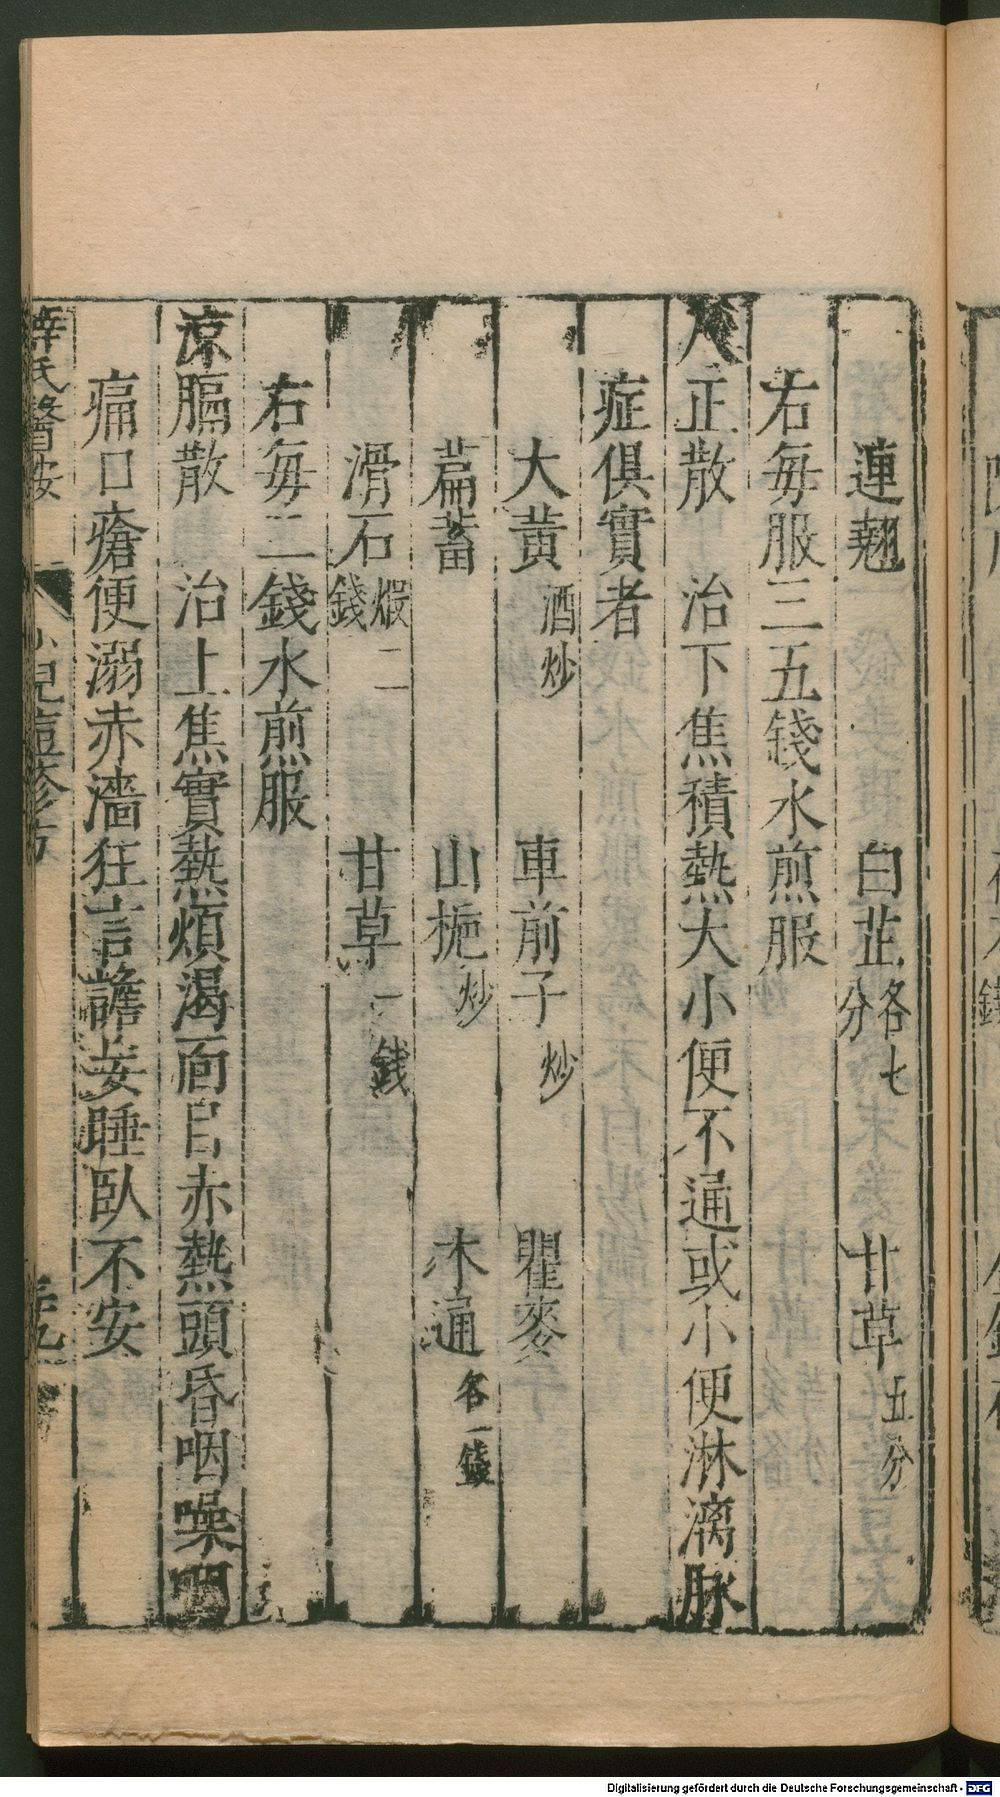 連翹 白芷各七分 甘草五分
右每服三五錢水煎服
八正散 治下焦積熱大小便不通或小便淋漓脉
症俱實者
大黃酒炒 車前子炒 瞿麥
萹蓄 山梔炒 木通各一錢
滑石煆二錢 甘草一錢
右每二錢水煎服
凉膈散 治上焦實熱煩渴面目赤熱頭昏咽噪咽
痛口瘡便溺赤濇狂言譫妄睡臥不安
薛氏醫按 小兒痘疹方
Digitalisierung gefördert durch die Deutsche Forschungsgemeinschaft - DFG